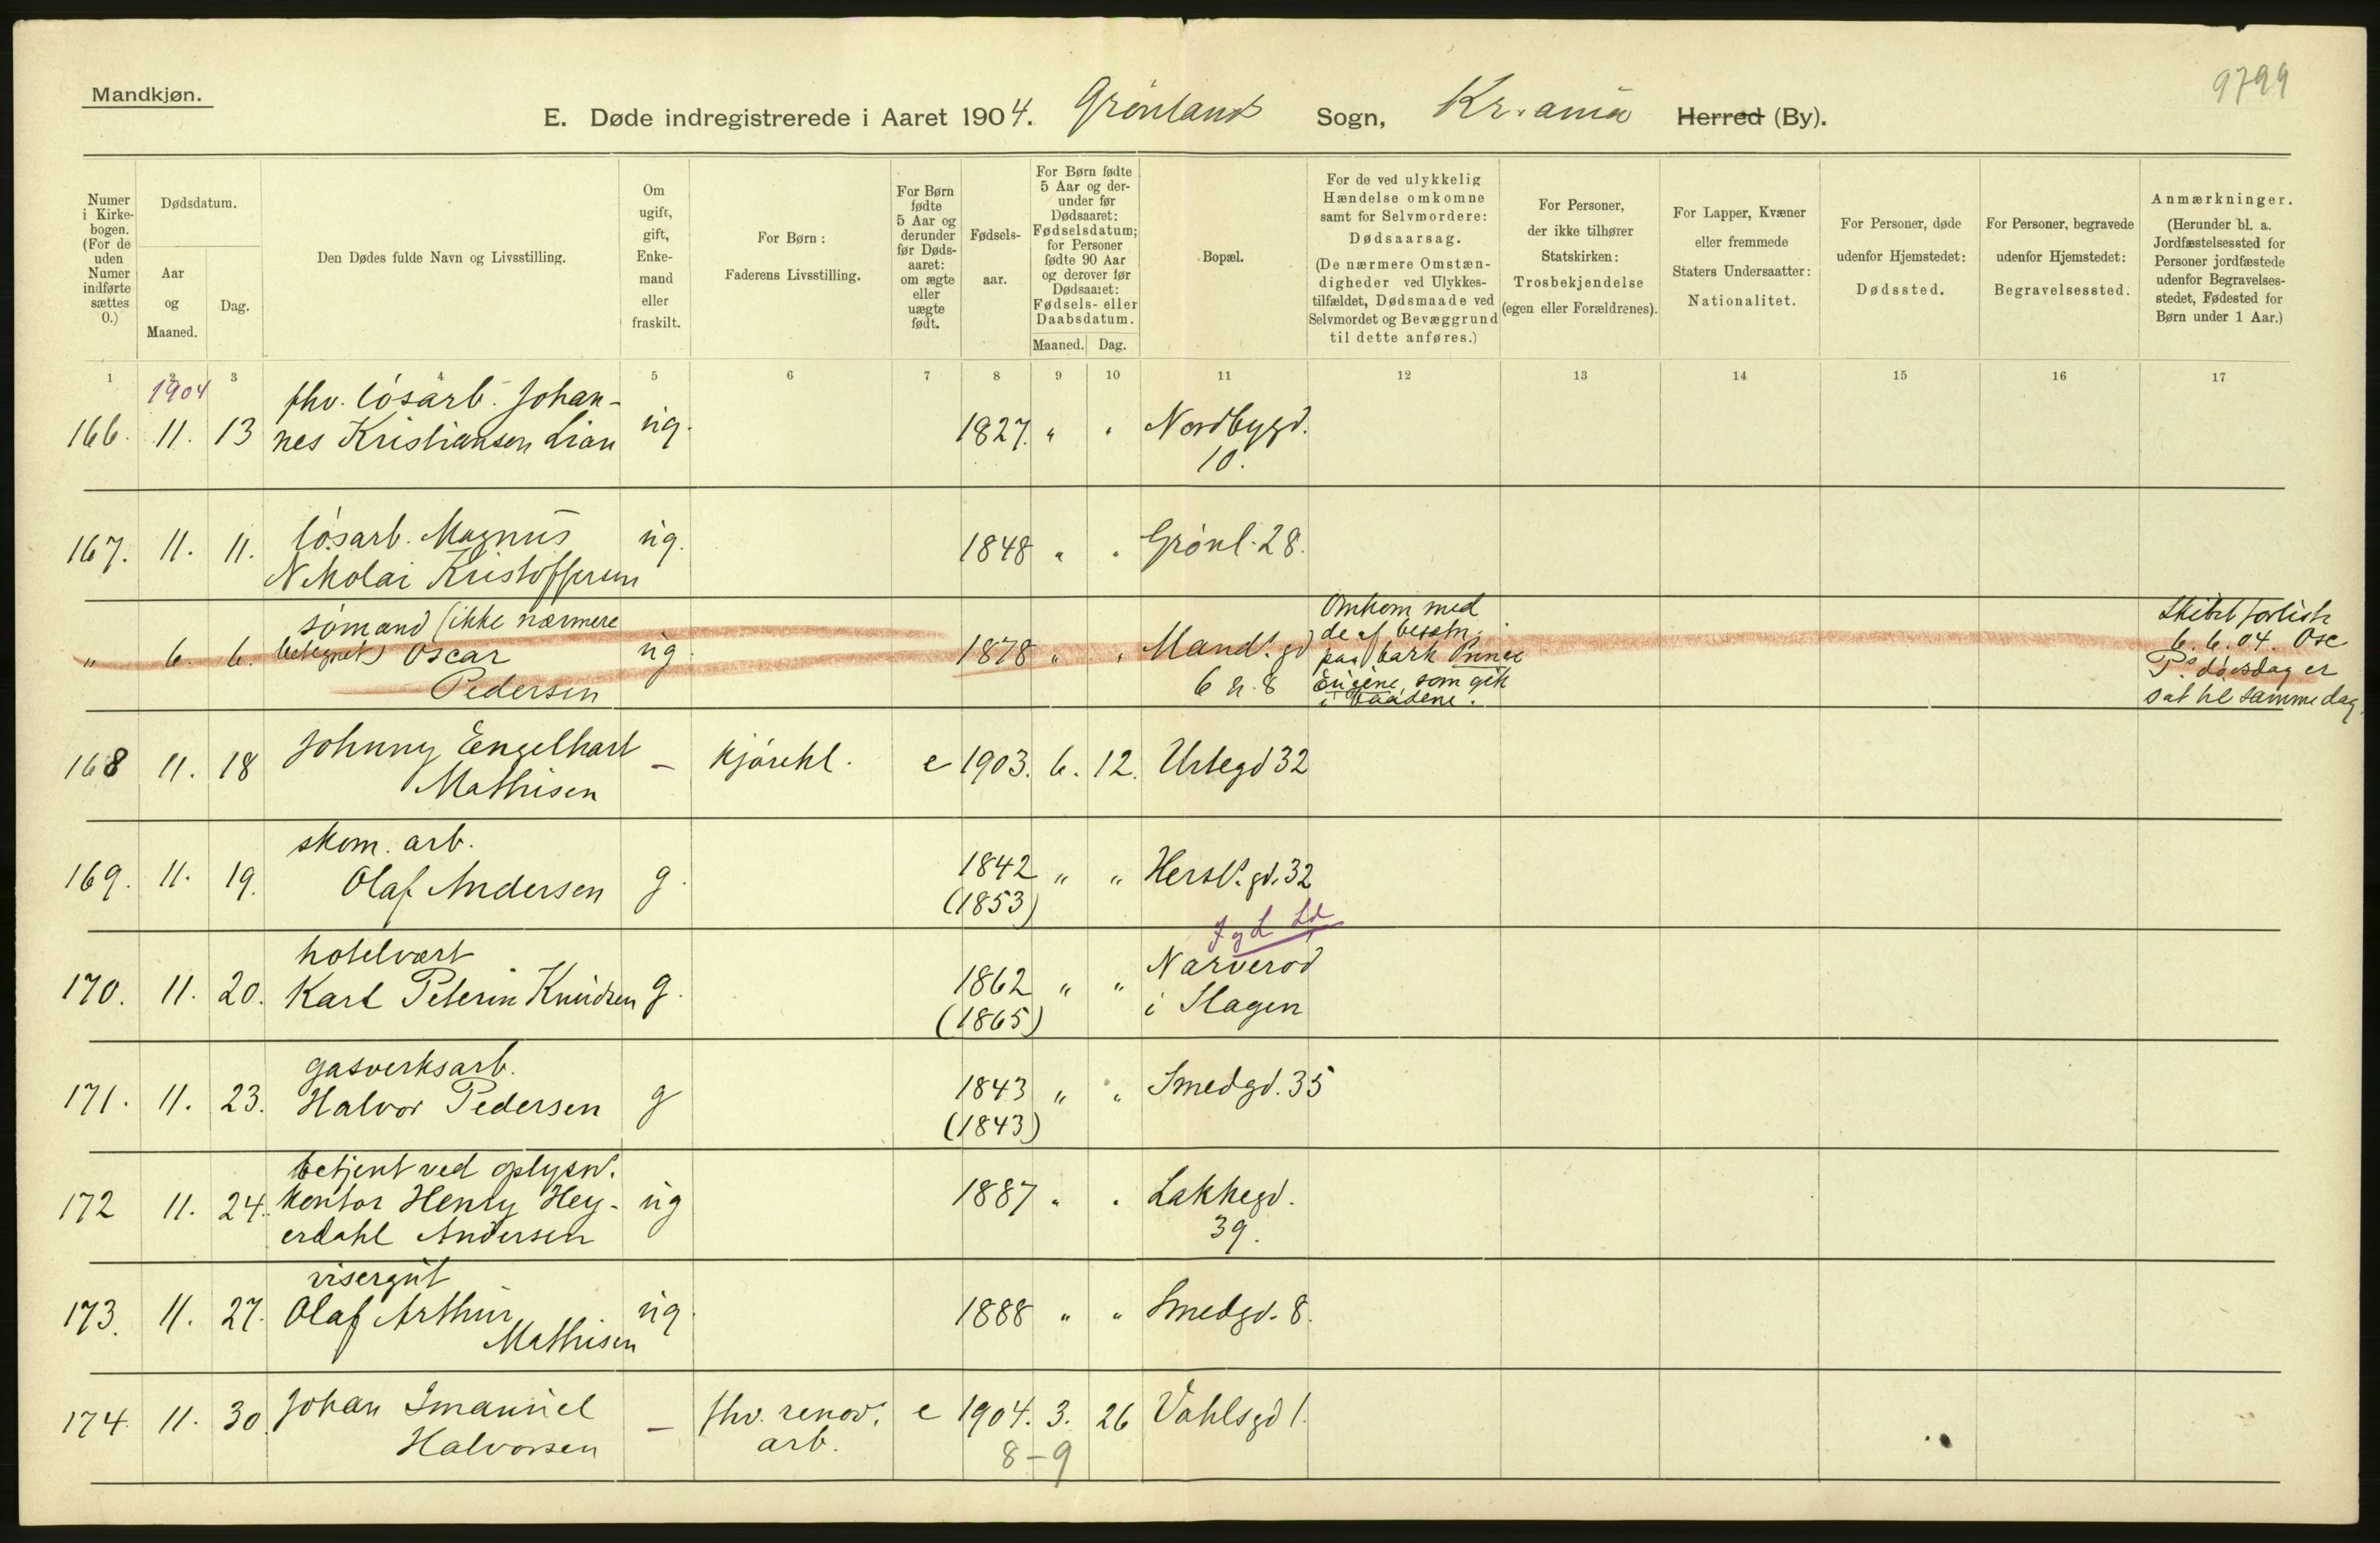 Mandkjøn.
9799
E. Døde indregistrerede i Aaret 1904. Grønland Sogn, Kr.ania Herred (By).
Numer i Kirkebogen. (For de uden Numer indførte sættes 0.)
Dødsdatum.
Aar og Maaned.
Dag.
Den Dødes fulde Navn og Livsstilling.
Om ugift, gift, Enkemand eller fraskilt.
For Børn: Faderens Livsstilling.
For Børn fødte 5 Aar og derunder før Dødsaaret: om ægte eller uægte født.
Fødselsaar.
For Børn fødte 5 Aar og derunder før Dødsaaret: Fødselsdatum; for Personer fødte 90 Aar og derover før Dødsaaret: Fødsels- eller Daabsdatum.
Maaned. Dag.
Bopæl.
For de ved ulykkelig Hændelse omkomne samt for Selvmordere: Dødsaarsag. (De nærmere Omstændigheder ved Ulykkestilfældet, Dødsmaade ved Selvmordet og Bevæggrund til dette anføres.)
For Personer, der ikke tilhører Statskirken: Trosbekjendelse (egen eller Forældrenes).
For Lapper, Kvæner eller fremmede Staters Undersaatter: Nationalitet.
For Personer, døde udenfor Hjemstedet: Dødssted.
For Personer, begravede udenfor Hjemstedet: Begravelsessted.
Anmærkninger. (Herunder bl. a. Jordfæstelsessted for Personer jordfæstede udenfor Begravelsesstedet, Fødested for Børn under 1 Aar.)
1 2 3 4 5 6 7 8 9 10 11 12 13 14 15 16 17
1904
fhv. løsarb. Johan-
166. 11. 13 nes Kristiansen Lian ug. 1827. " " Nordbygd.
10.
løsarb. Magnus
167. 11. 11. Nikolai Kristoffersen ug. 1848 " " Grønl. 28.
sømand (ikke nærmere
betegnet) Oscar
" 6. 6. Pedersen ug. 1878 " " Mands. gd
6 n. 8
Omkom med
de af besætn.
paa bark Prince
Eugene, som gik
i baadene.
Skibet forliste
6.6.04. Osc
P.s dødsdag er
sat til samme dag.
168 11. 18 Johnny Engelhart — kjørekl. e 1903. 6. 12. Urtegd 32
Mathisen
skom. arb.
169. 11. 19. Olaf Andersen g. 1842 " " Hersl. gd. 32
(1853)
hotelvært
170. 11. 20. Karl Peterin Knudsen g. 1862 " " Narverød
(1865) i Slagen
gasverksarb.
171. 11. 23. Halvor Pedersen g 1843 " " Smedgd. 35
(1843)
betjent ved oplysn.
172 11. 24. kontor Henry Hey- ug 1887 " " Lakkegd.
erdahl Andersen 39.
visergut
173. 11. 27. Olaf Arthur ug. 1888 " " Smedgd. 8.
Mathisen
174. 11. 30. Johan Imanuel — fhv. renov. e 1904. 3. 26 Vahlsgd 1.
Halvorsen arb.
8-9